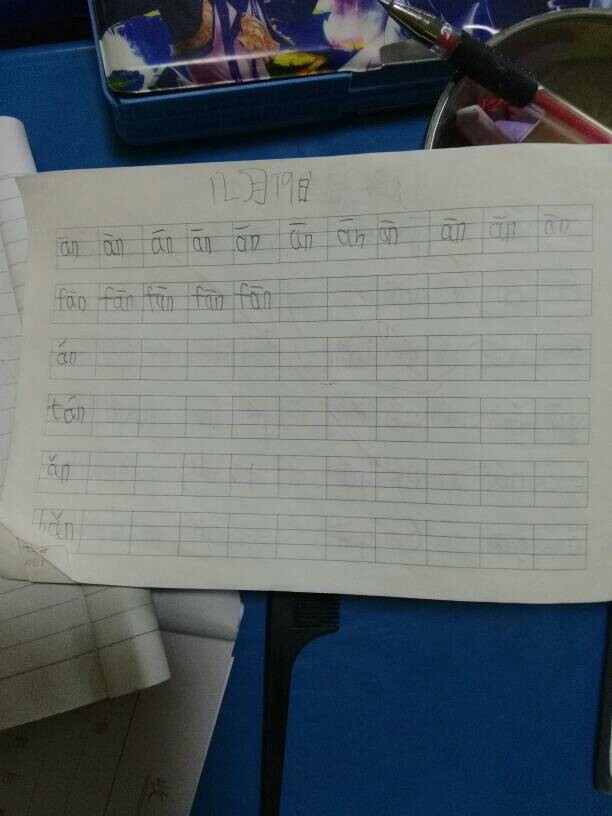 12月19日
ān ān ān ān ān ān ān ān ān ān ān
fān fān fān fān fān
án
tán
ǎn
hǎn